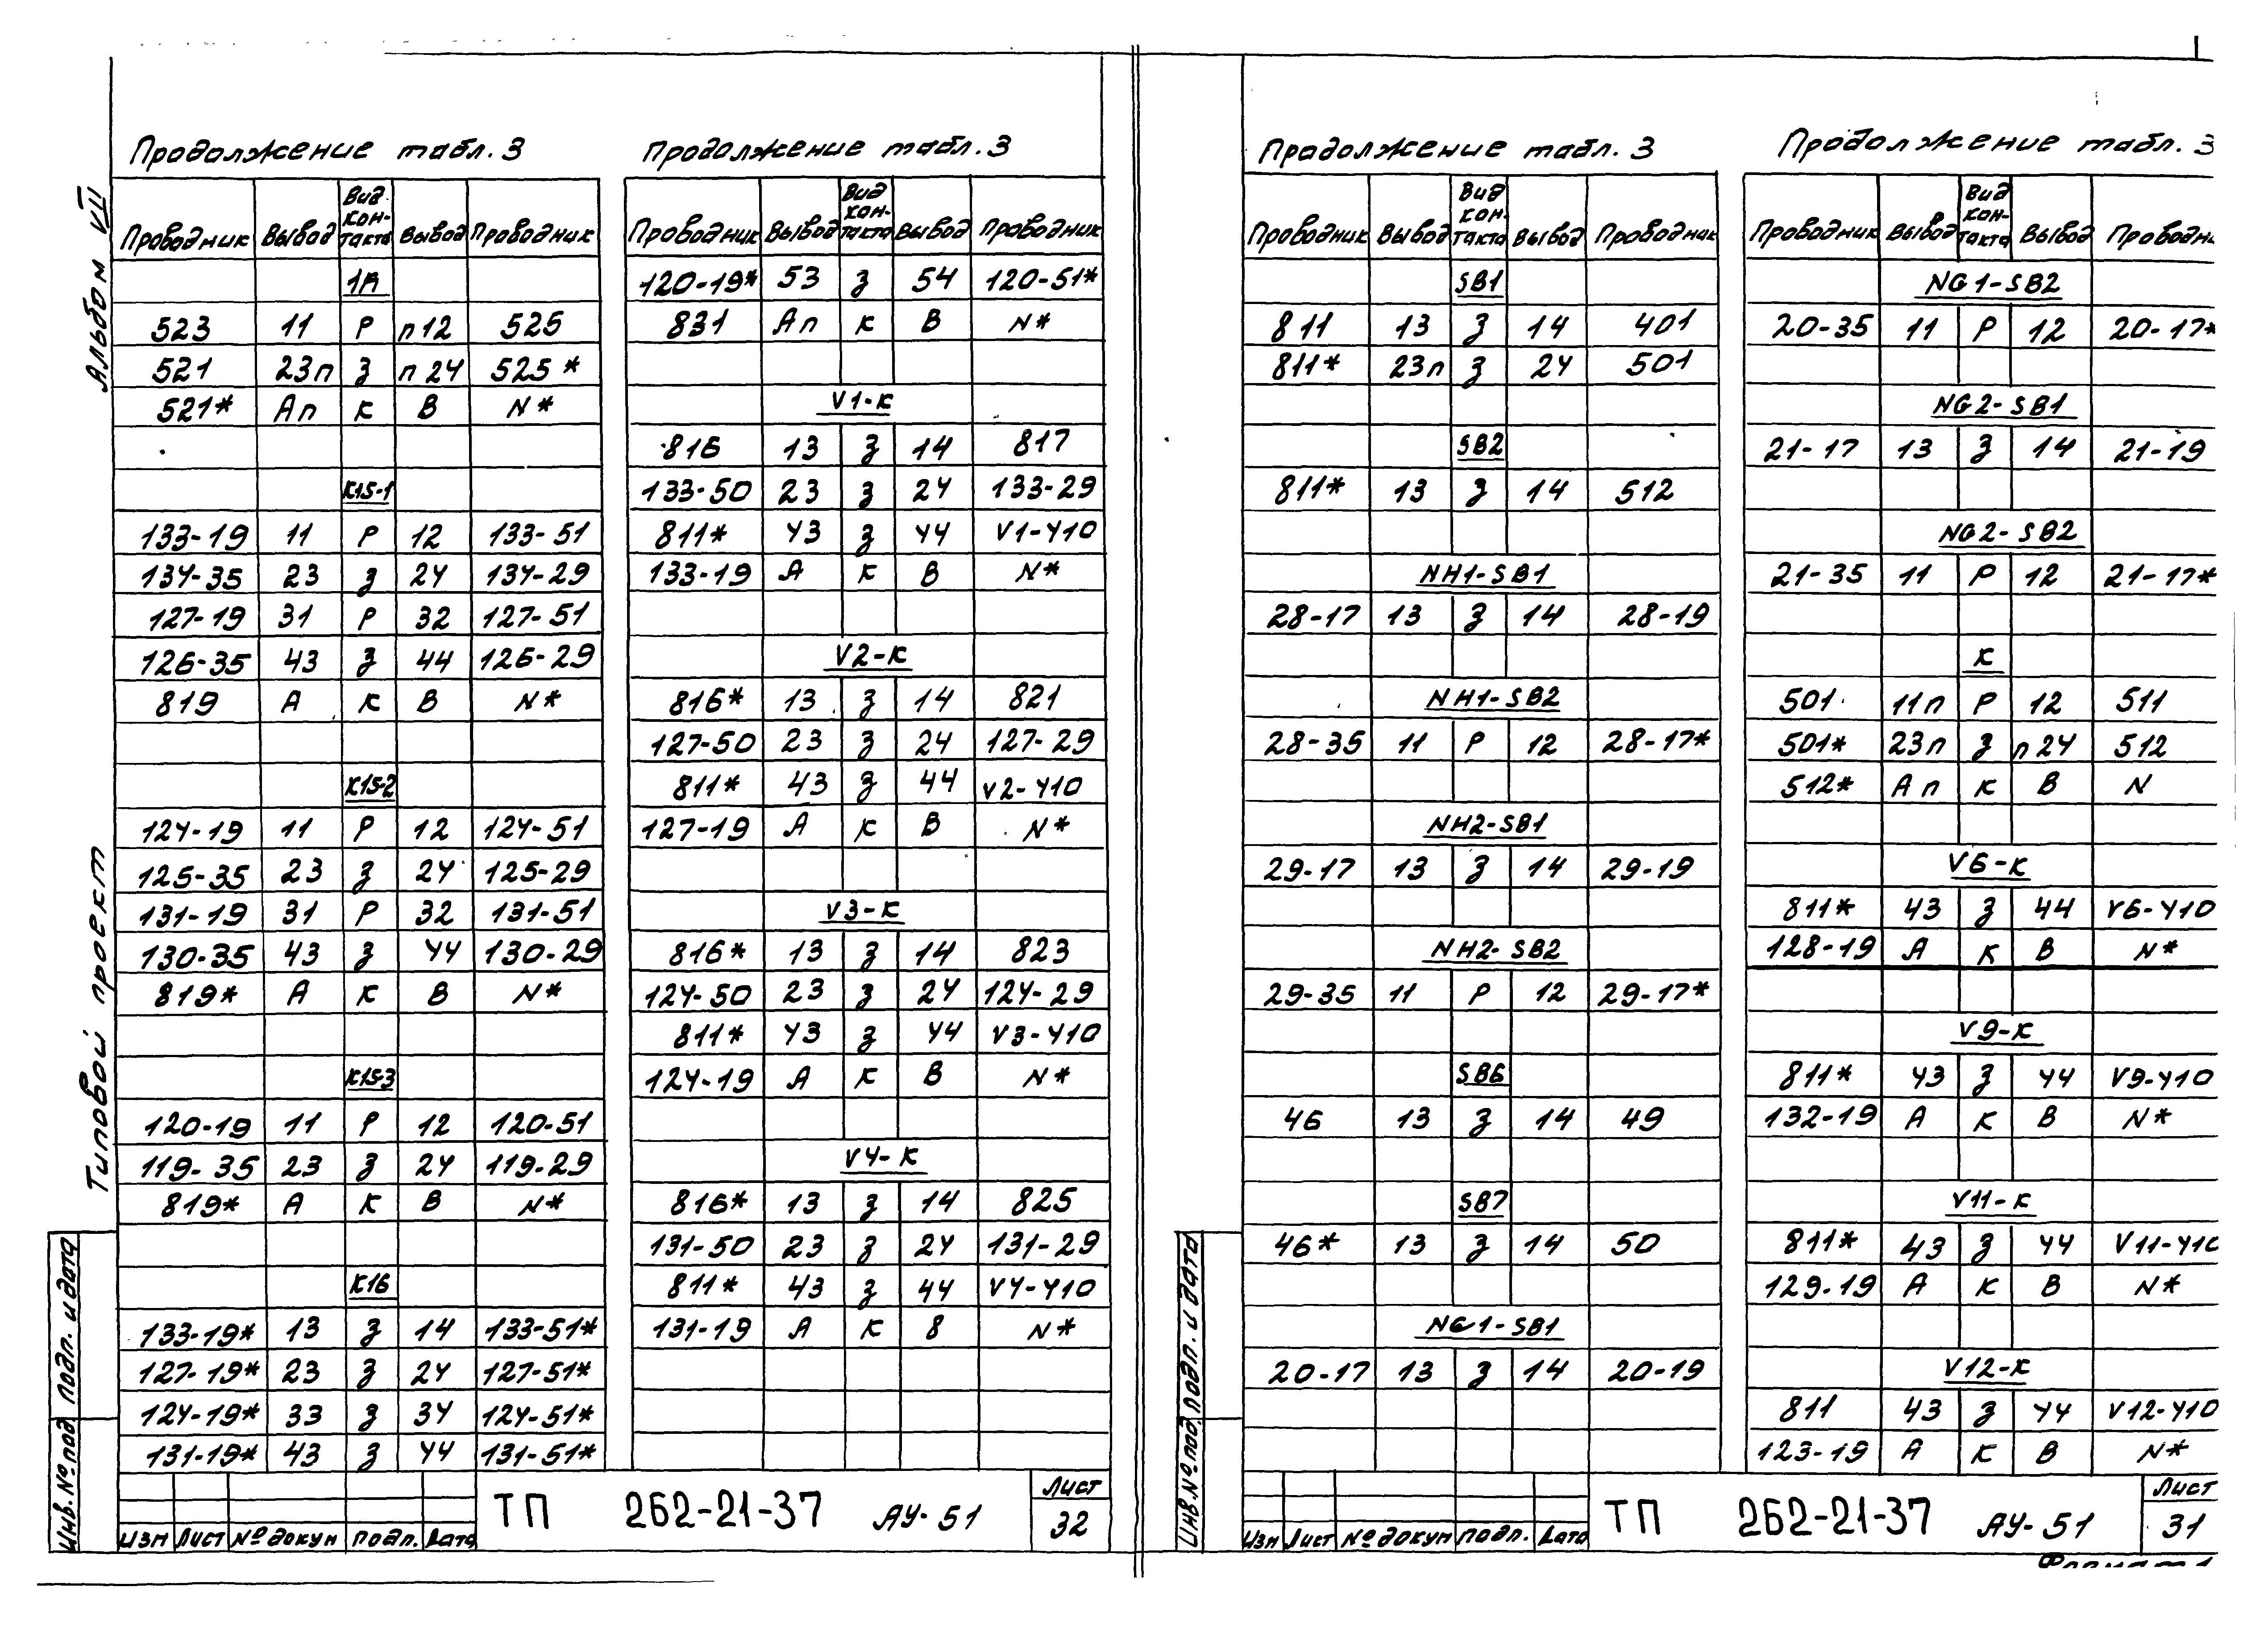 Альбом VII
Типовой проект
Продолжение табл. 3
Проводник Вывод Вид кон-такта Вывод Проводник
1А
523 11 Р п12 525
521 23п З п24 525*
521* Ап К В N*
К15-1
133-19 11 Р 12 133-51
134-35 23 З 24 134-29
127-19 31 Р 32 127-51
126-35 43 З 44 126-29
819 А К В N*
К15-2
124-19 11 Р 12 124-51
125-35 23 З 24 125-29
131-19 31 Р 32 131-51
130-35 43 З 44 130-29
819* А К В N*
К15-3
120-19 11 Р 12 120-51
119-35 23 З 24 119-29
819* А К В N*
К16
133-19* 13 З 14 133-51*
127-19* 23 З 24 127-51*
124-19* 33 З 34 124-51*
131-19* 43 З 44 131-51*
Продолжение табл. 3
Проводник Вывод Вид кон-такта Вывод Проводник
120-19* 53 З 54 120-51*
831 Ап К В N*
V1-К
816 13 З 14 817
133-50 23 З 24 133-29
811* 43 З 44 V1-У10
133-19 А К В N*
V2-К
816* 13 З 14 821
127-50 23 З 24 127-29
811* 43 З 44 V2-У10
127-19 А К В N*
V3-К
816* 13 З 14 823
124-50 23 З 24 124-29
811* 43 З 44 V3-У10
124-19 А К В N*
V4-К
816* 13 З 14 825
131-50 23 З 24 131-29
811* 43 З 44 V4-У10
131-19 А К 8 N*
Инв.№под Подп. и дата
Изм Лист № докум Подп. Дата
ТП 262-21-37 АУ-51
Лист
32
Продолжение табл. 3
Проводник Вывод Вид кон-такта Вывод Проводник
SB1
811 13 З 14 401
811* 23п З 24 501
SB2
811* 13 З 14 512
NH1-SB1
28-17 13 З 14 28-19
NH1-SB2
28-35 11 Р 12 28-17*
NH2-SB1
29-17 13 З 14 29-19
NH2-SB2
29-35 11 Р 12 29-17*
SB6
46 13 З 14 49
SB7
46* 13 З 14 50
NG1-SB1
20-17 13 З 14 20-19
Продолжение табл. 3
Проводник Вывод Вид кон-такта Вывод Проводни
NG1-SB2
20-35 11 Р 12 20-17*
NG2-SB1
21-17 13 З 14 21-19
NG2-SB2
21-35 11 Р 12 21-17*
К
501 11п Р 12 511
501* 23п З п24 512
512* Ап К В N
V6-К
811* 43 З 44 V6-У10
128-19 А К В N*
V9-К
811* 43 З 44 V9-У10
132-19 А К В N*
V11-К
811* 43 З 44 V11-У10
129-19 А К В N*
V12-К
811 43 З 44 V12-У10
123-19 А К В N*
Инв.№под Подп. и дата
Изм Лист № докум Подп. Дата
ТП 262-21-37 АУ-51
Лист
31